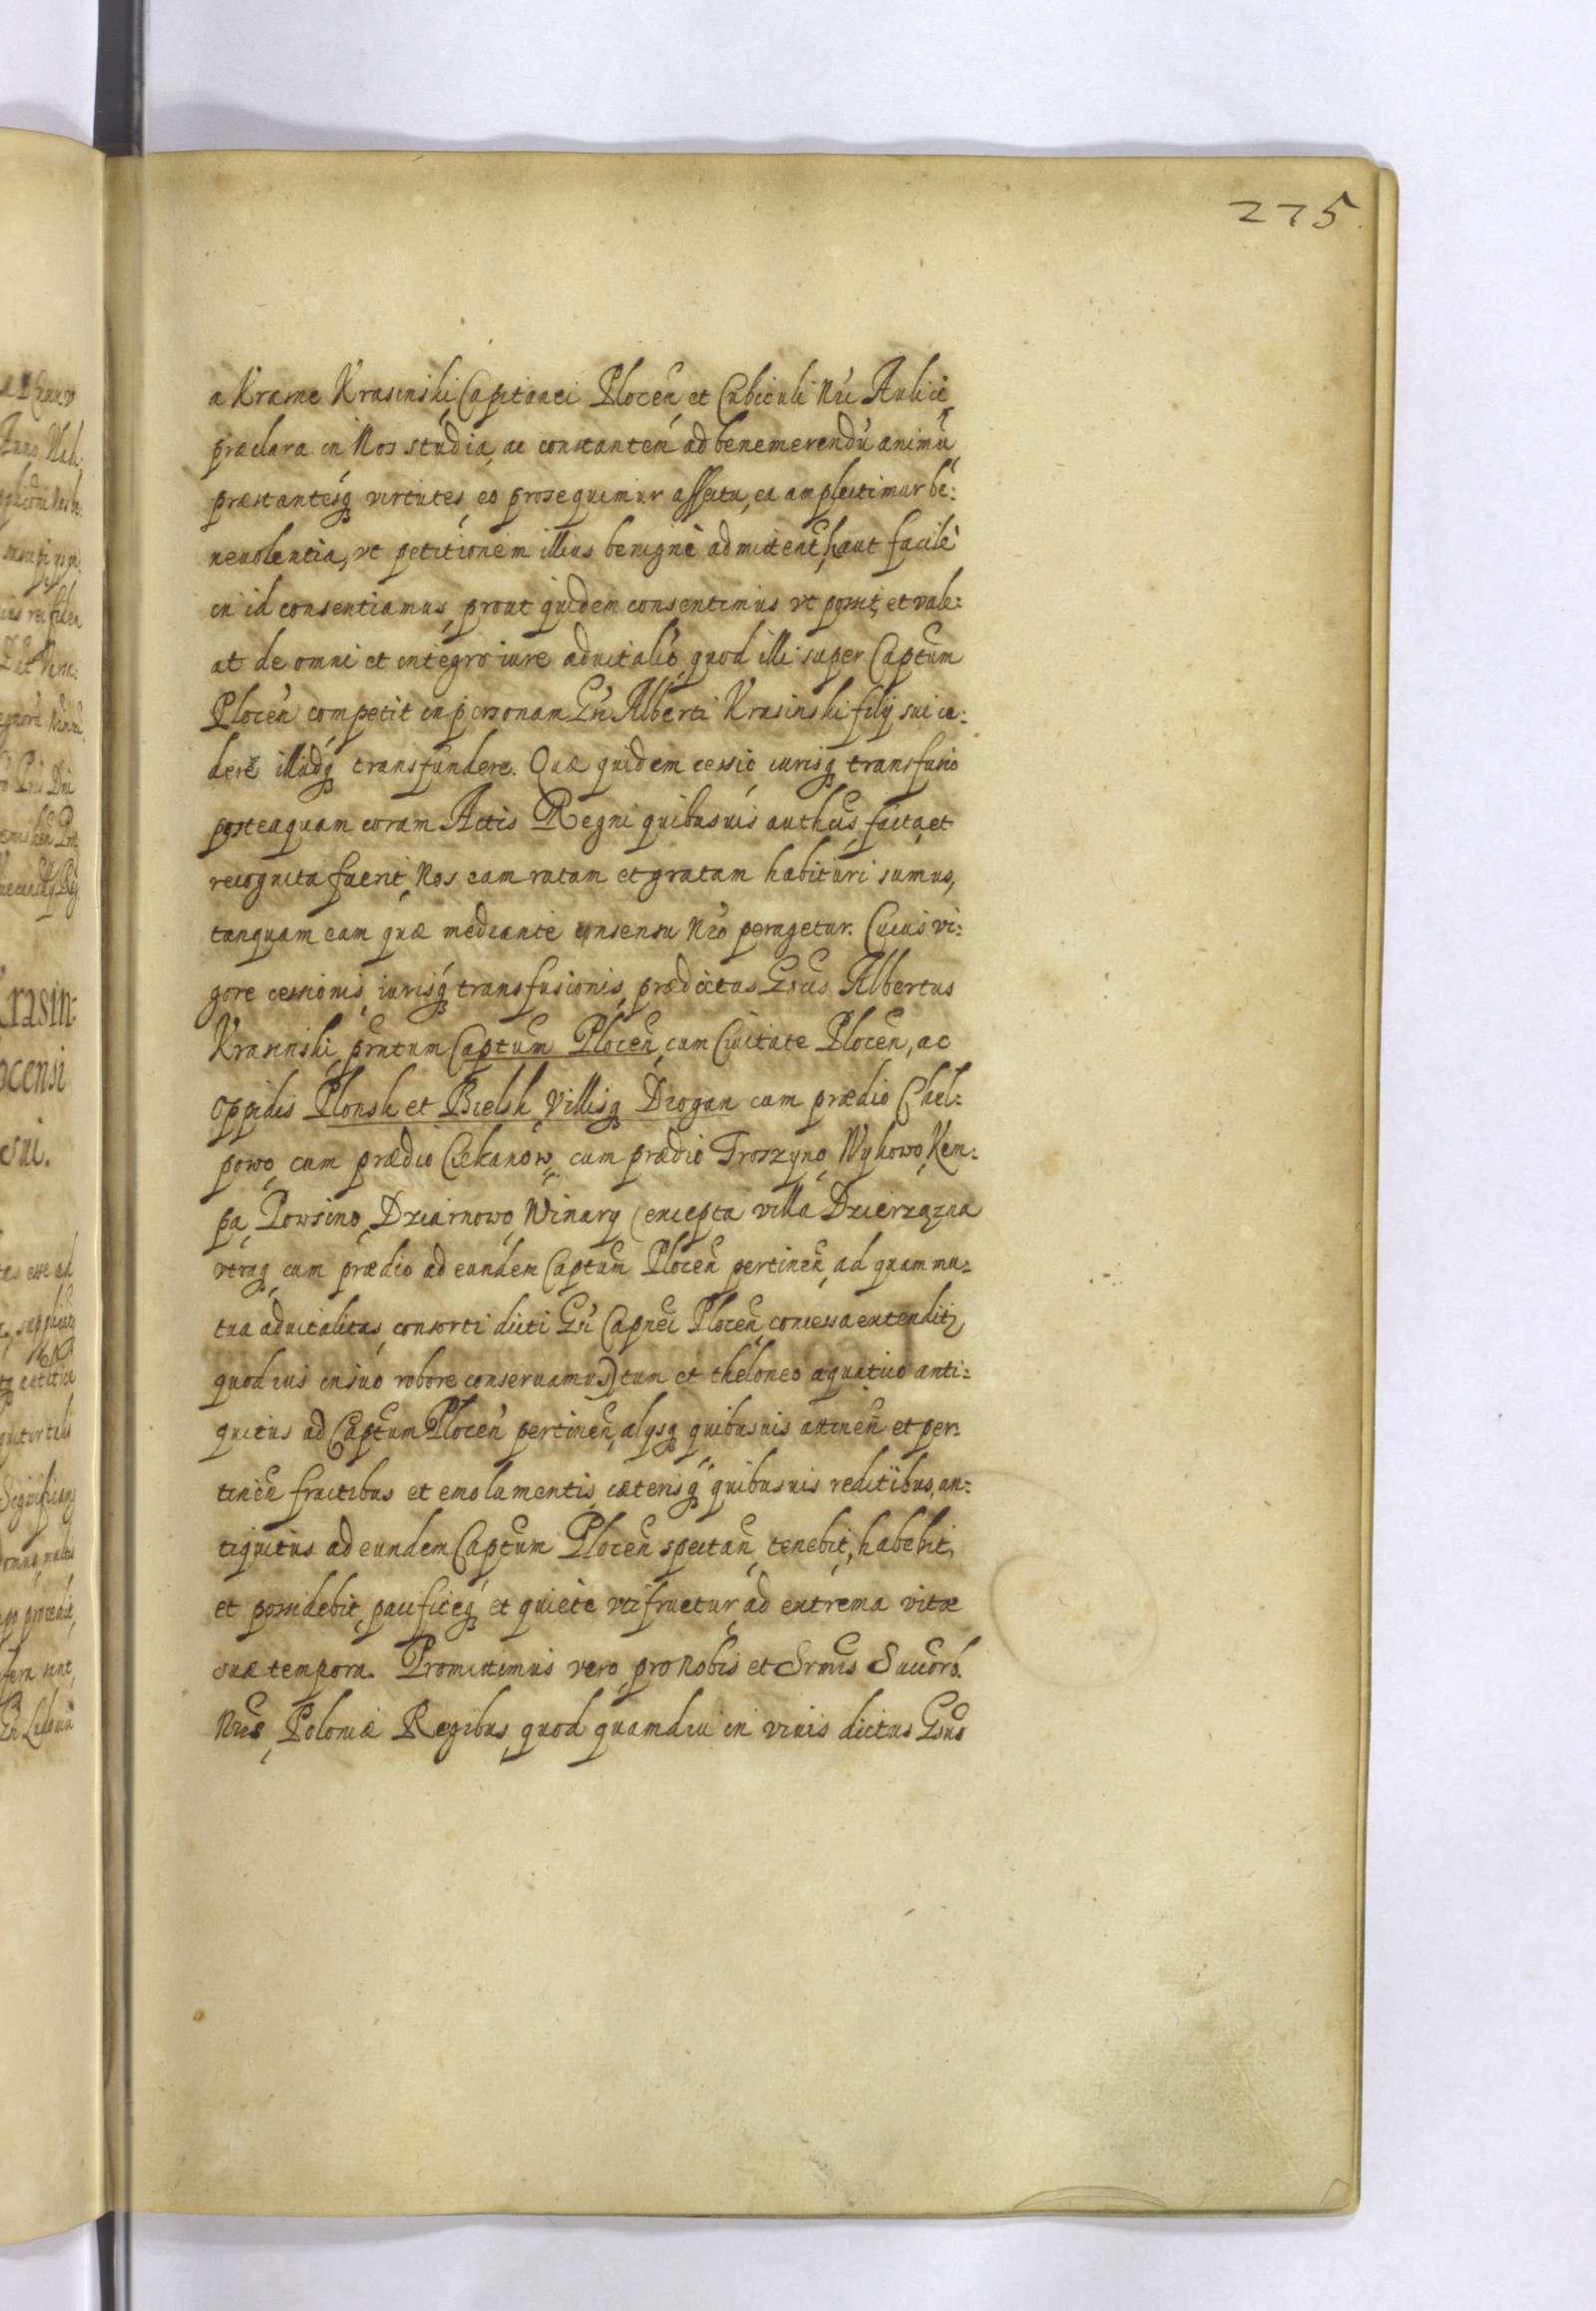 275
a Krasne Krasinski Capitanei Plocen̄ et Cubiculi Nr̄i Aulici,
præclara in Nos studia, ac constantem ad benemerendū animū,
præstantesq́ꝫ virtutes, eo prosequimur affectu, ea amplectimur be:
neuolentia, vt petitionem illius benignè admitten̄t, haut facilè
in id consentiamus, prout quidem consentimus vt possit, et vale:
at de omni et integro iure aduitalio, quod illi super Captūm
Plocen̄ competit in personam Gn̄i Alberti Krasinski filij sui ce:
dere illudq́ꝫ transfundere. Quæ quidem cessio, iurisq́ꝫ transfusio
posteaquam coram Actis Regni quibusuis authcīs, facta, et
recognita fuerit, Nos eam ratam et gratam habituri sumus,
tanquam eam quæ mediante consensu Nr̄o peragetur. Cuius vi:
gore cessionis, iurisq́ꝫ transfusionis, prædictus Gsūs Albertus
Krasinski, prn̄tum Captūm Plocen̄, cum Ciuitate Plocen̄, ac
oppidis Plonsk et Bielsk, Villisqꝫ Drogan cum prædio Chel:
powo, cum prædio Ciekanów, cum prædio Troszyno, Wykowo, Kem:
pa, Powsino, Dziarnowo, Winary (excepta villa Dzierzązna
vtraqꝫ cum prædio ad eundem Captūm Plocen̄ pertinen̄, ad quam mu:
tua aduitalitas, consorti dicti Gn̄i Capnēi Plocen̄, concessa extenditꝫ,
quod ius in suo robore conseruamus) tum et theloneo aquatico anti:
quitus ad Captūm Plocen̄ pertinen̄, alijsqꝫ quibusuis attinen̄ et per:
tinen̄ fructibus et emolumentis, cæterisq́ꝫ quibusuis reditibus, an:
tiquitus ad eundem Captūm Plocen̄ spectan̄, tenebit, habebit,
et possidebit, pacificeq́ꝫ et quiete vtifruetur, ad extrema vitæ
suæ tempora. Promittimus vero, pro Nobis et Srmīs Succorb.
Nrīs, Poloniæ Regibus, quod quamdiu in viuis dictus Gsūs